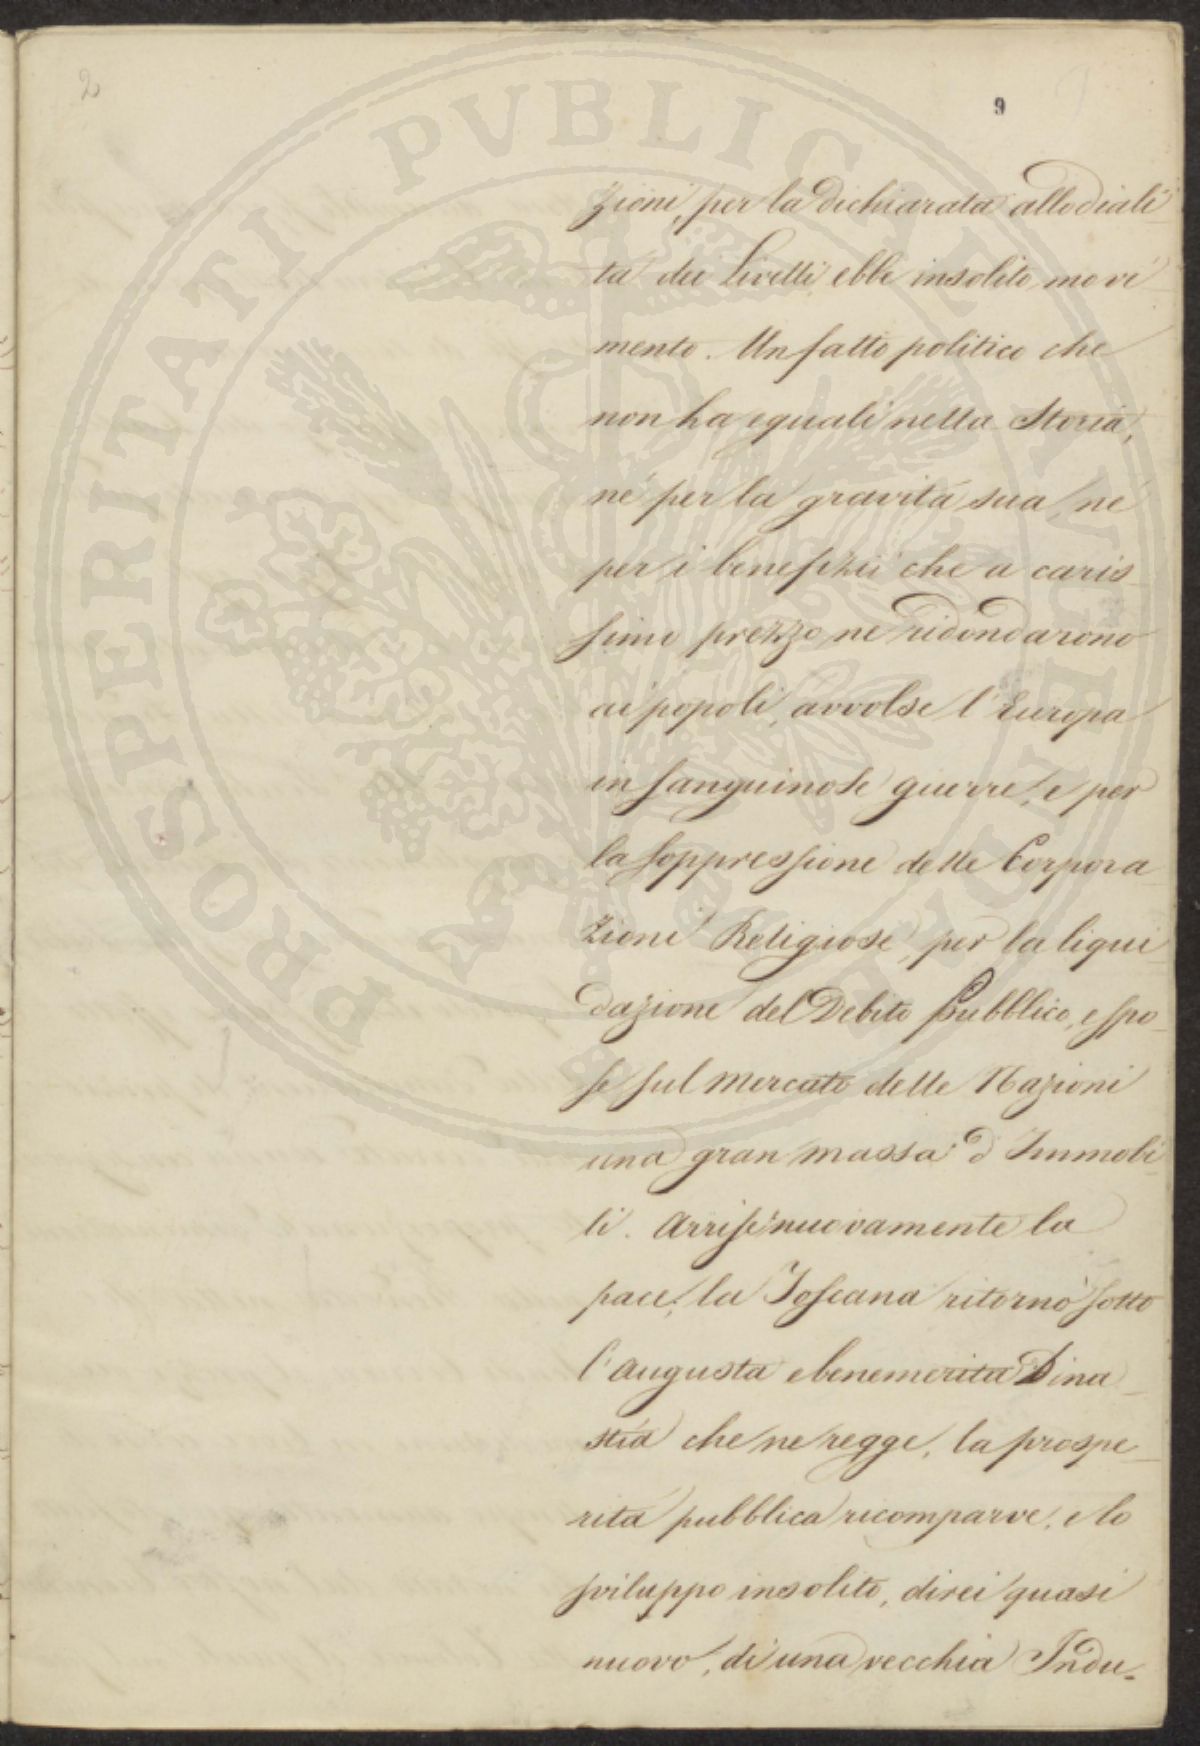 2
9
zioni, per la dichiarata allodiali-
tà dei Livelli ebbe insolito movi-
mento. Un fatto politico che
non ha eguali nella Storia,
nè per la gravità sua, nè
per i benefizii che a caris-
simo prezzo ne ridondarono
ai popoli, avvolse l'Europa
in sanguinose guerre, e per
la soppressione delle Corpora-
zioni Religiose, per la liqui-
dazione del Debito Pubblico, espo-
se sul mercato delle Nazioni
una gran massa d'Immobi-
li. Arrise nuovamente la
pace; la Toscana ritornò sotto
l'augusta e benemerita Dina-
stia che ne regge, la prospe-
rità pubblica ricomparve, e lo
sviluppo insolito, direi quasi
nuovo, di una vecchia Indu-
PROSPERITATI PUBLICAE AUGENDAE